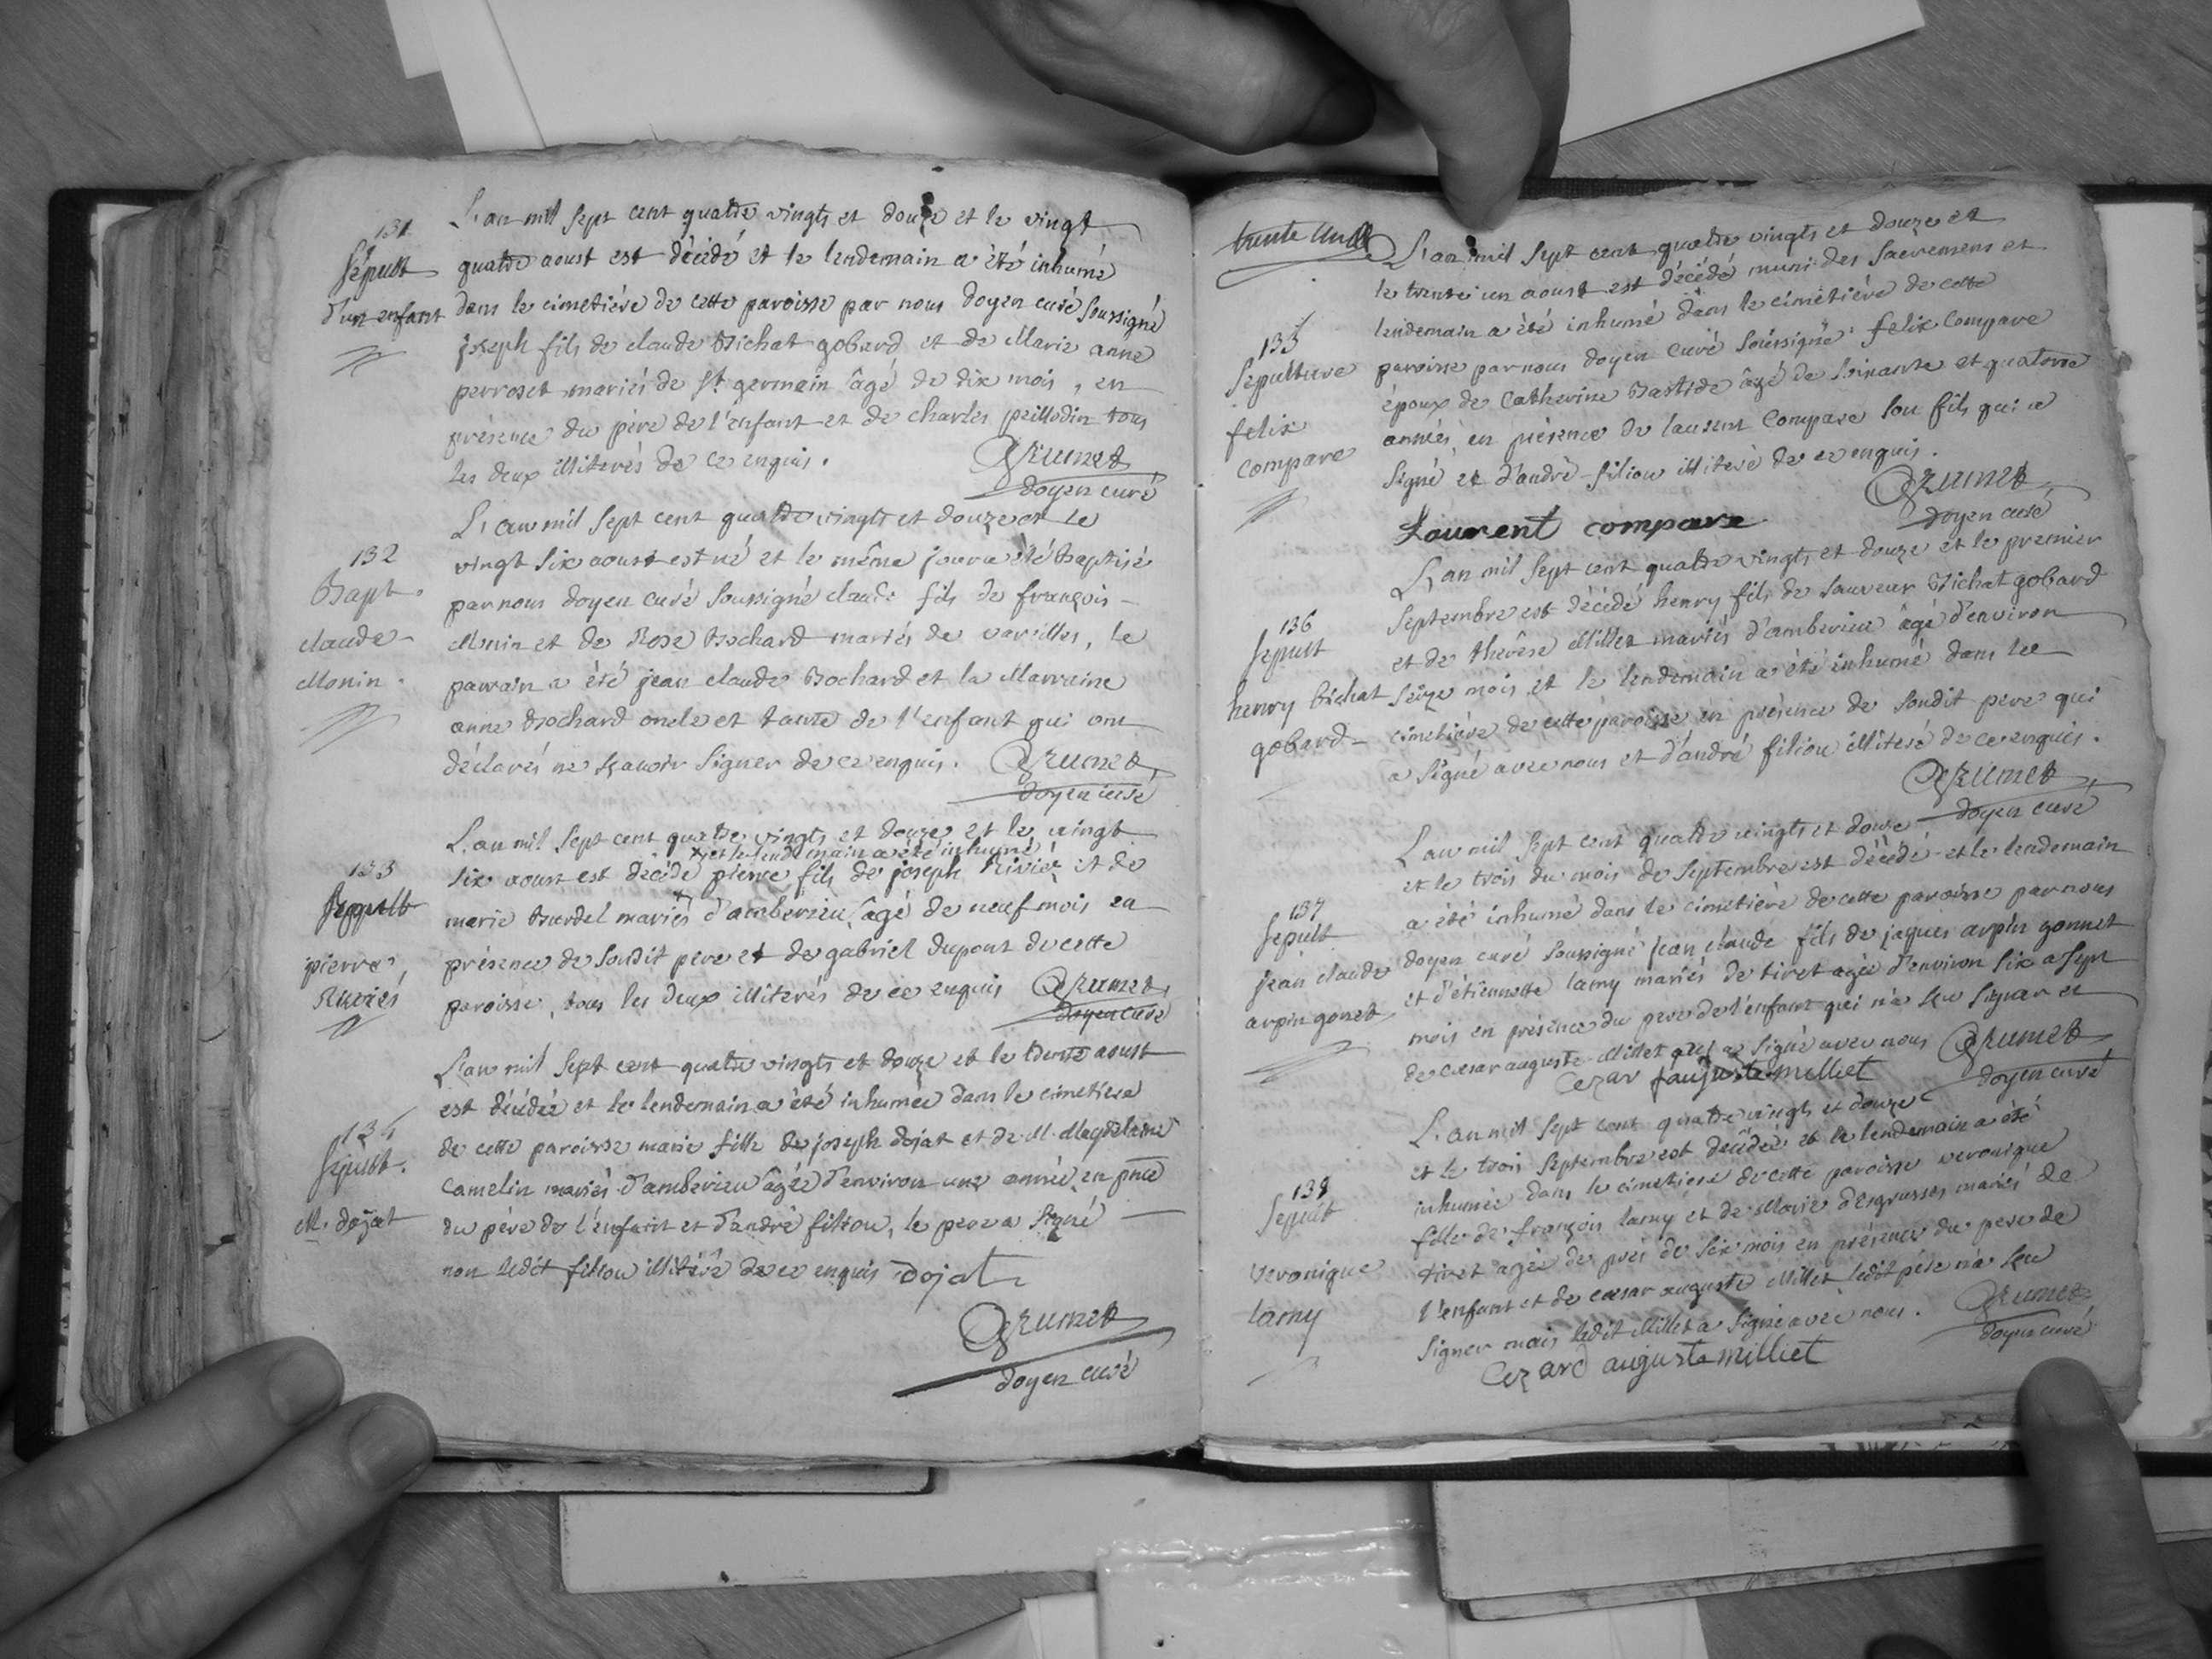 131
Sepult
d'un enfant
L'an mil sept cent quatre vingts et douze et le vingt
quatre aoust est décédé et le lendemain a été inhumé
dans le cimetiére de cette paroisse par nous doyen curé soussigné
joseph fils de claude Bichat gobard et de Marie anne
perroset mariés de St germain âgé de dix mois, en
présence du père de l'enfant et de charles peillodin tous
les deux illiterés de ce enquis.
Grumet
doyen curé
132
Bapt.
claude
Monin.
L'an mil sept cent quatre vingts et douze et le
vingt six aoust est né et le même jour a été Baptisé
par nous doyen curé soussigné claude fils de françois
Monin et de Rose Bochard mariés de vareilles, le
parrain a été jean claude Bochard et la Marraine
anne Bochard oncle et tante de l'enfant qui ont
déclarés ne sçavoir signer de ce enquis.
Grumet
doyen curé
133
Sepult
pierre
Riviés
L'an mil sept cent quatre vingts et douze et le vingt
et le lendemain a été inhumé
six aoust est décédé pierre fils de joseph Rivier et de
marie Burdel mariés d'amberieu, âgé de neuf mois en
présence de sondit pere et de gabriel dupont de cette
paroisse, tous les deux illiterés de ce enquis
Grumet
doyen curé
134
Sepult.
M. dojat
L'an mil sept cent quatre vingts et douze et le trente aoust
est décédée et le lendemain a été inhumée dans le cimetiere
de cette paroisse marie fille de joseph dojat et de M. Magdelaine
Camelin mariés d'amberieu âgée d'environ une année en pnce
du pére de l'enfant et d'andré filliou, le pere a signé
non ledit filliou illiteré de ce enquis dojat
Grumet
doyen curé
trente un
135
Sepulture
felix
compare
L'an mil sept cent quatre vingts et douze et
le trente un aoust est décédé muni des sacremens et
lendemain a été inhumé dans le cimetiére de cette
paroisse par nous doyen curé soussigné felix Compare
époux de Catherine Bastide âgé de soixante et quatorze
années en présence de laurent Compare son fils qui a
signé et d'andré filliou illiteré de ce enquis.
Grumet
doyen curé
Laurent compare
136
sepult
henry bichat
gobard
L'an mil sept cent quatre vingts et douze et le premier
septembre est décédé henry fils de sauveur Bichat gobard
et de therêse Millet mariés d'amberieu âgé d'environ
seize mois et le lendemain a été inhumé dans le
cimetiére de cette paroisse en présence de sondit pere qui
a signé avec nous et d'andré filiou illiteré de ce enquis.
Grumet
doyen curé
137
sepult
jean claude
arpin gonet
L'an mil sept cent quatre vingts et douze
et le trois du mois de septembre est décédé et le lendemain
a été inhumé dans le cimetiére de cette paroisse par nous
doyen curé soussigné jean claude fils de jaques arpin gonnet
et d'étiennette lamy mariés de tiret agée d'environ six a sept
mois en présence du pere de l'enfant qui n'a sçu signer et
de cæsar auguste Millet qui a signé avec nous
Grumet
Cezar auguste milliet
doyen curé
138
sepult
veronique
lamy
L'an mil sept cent quatre vingts et douze
et le trois septembre est decédée et le lendemain a été
inhumée dans le cimetiere de cette paroisse veronique
fille de françois lamy et de Marie desgrusses mariés de
tiret agée de prés de six mois en présence du pere de
l'enfant et de cæsar auguste Millet ledit pére n'a sçu
signer mais ledit Millet a signé avec nous.
Grumet
doyen curé
Cezard auguste milliet